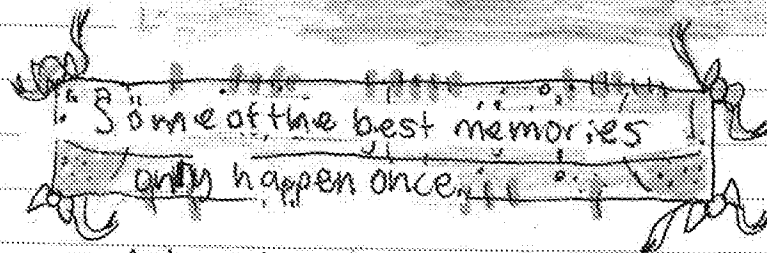 Some of the best memories
only happen once.